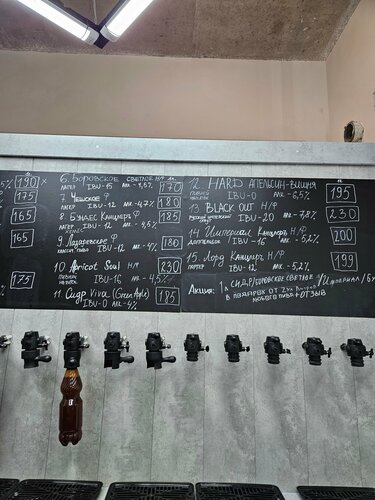 5%
190
175
165
165
175
6. Боровское светлое Н/Ф
лагер IBU-15 Алк.-4,5%
170
7. Чешское Ф
лагер IBU-12 Алк.-4,7%
180
8. Блэдес Канцлеръ Ф
IBU-12 Алк-4,5%
185
9. Ф
IBU-12 Алк-4%
180
10 Apricot Soul Н/Ф
IBU-16 Алк-4,5%
230
11 Сидр Viva (Green Apple)
IBU-0 Алк-4%
185
12. HARD Апельсин-вишня
IBU-0 Алк-6,5%
195
13. BLACK OUT Н/Ф
IBU-20 Алк-7,8%
230
14 Империал Канцлеръ Н/Ф
IBU-16 Алк-5,2%
200
15. Лорд Канцлеръ Н/Ф
портер IBU-12 Алк-5,2%
199
Акция: 1л сидр/боровское светлое
в подарок от
любого пива + отзыв